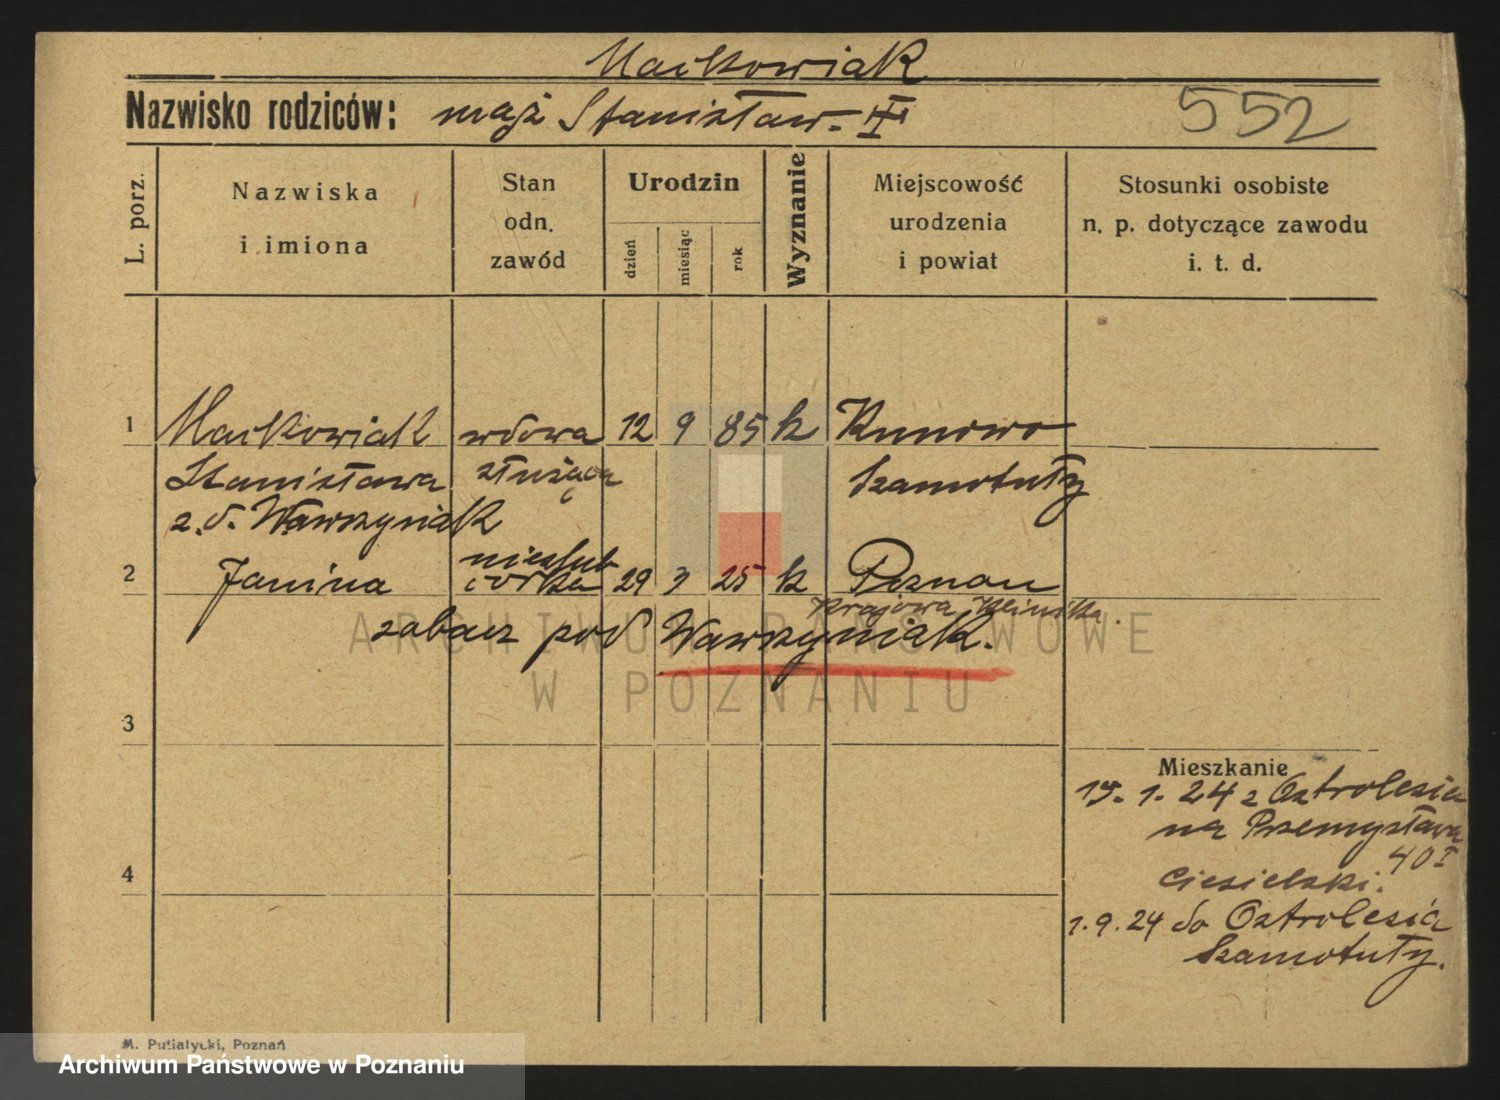 Maćkowiak
Nazwisko rodziców: mąż Stanisław - †
552
L. porz.
Nazwiska
i imiona
Stan
odn.
zawód
Urodzin
dzień
miesiąc
rok
Wyznanie
Miejscowość
urodzenia
i powiat
Stosunki osobiste
n. p. dotyczące zawodu
i. t. d.
1 Maćkowiak wdowa 12 9 85 k Kunowo
Stanisława służąca Szamotuły
z. d. Wawrzyniak
nieślub
2 Janina córka 29 3 25 k Poznań
Krajowa Klinika.
zobacz pod Wawrzyniak.
3
Mieszkanie
15. 1. 24 z Ostrolesia
na Przemysława
40 I
4
Ciesielski.
1. 9. 24 do Ostrolesia
Szamotuły.
ARCHIWUM PAŃSTWOWE
W POZNANIU
M. Putiatycki, Poznań
Archiwum Państwowe w Poznaniu